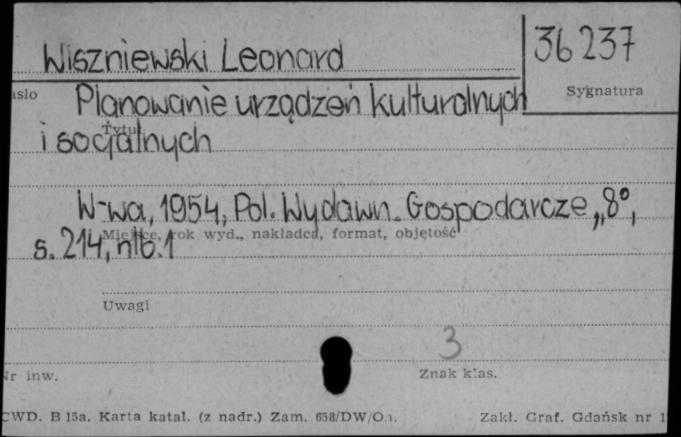 Wiszniewski Leonard
36 237
Sygnatura
asło
Planowanie urządzeń kulturalnych
Tytuł
i socjalnych
W-wa, 1954, Pol. Wydawn. Gospodarcze, 8°,
Miejsce, rok wyd., nakładca, format, objętość
s. 214, nlb. 1
Uwagi
3
Nr inw.
Znak klas.
CWD. B 15a. Karta katal. (z nadr.) Zam. 658/DW/O
Zakł. Graf. Gdańsk nr 1